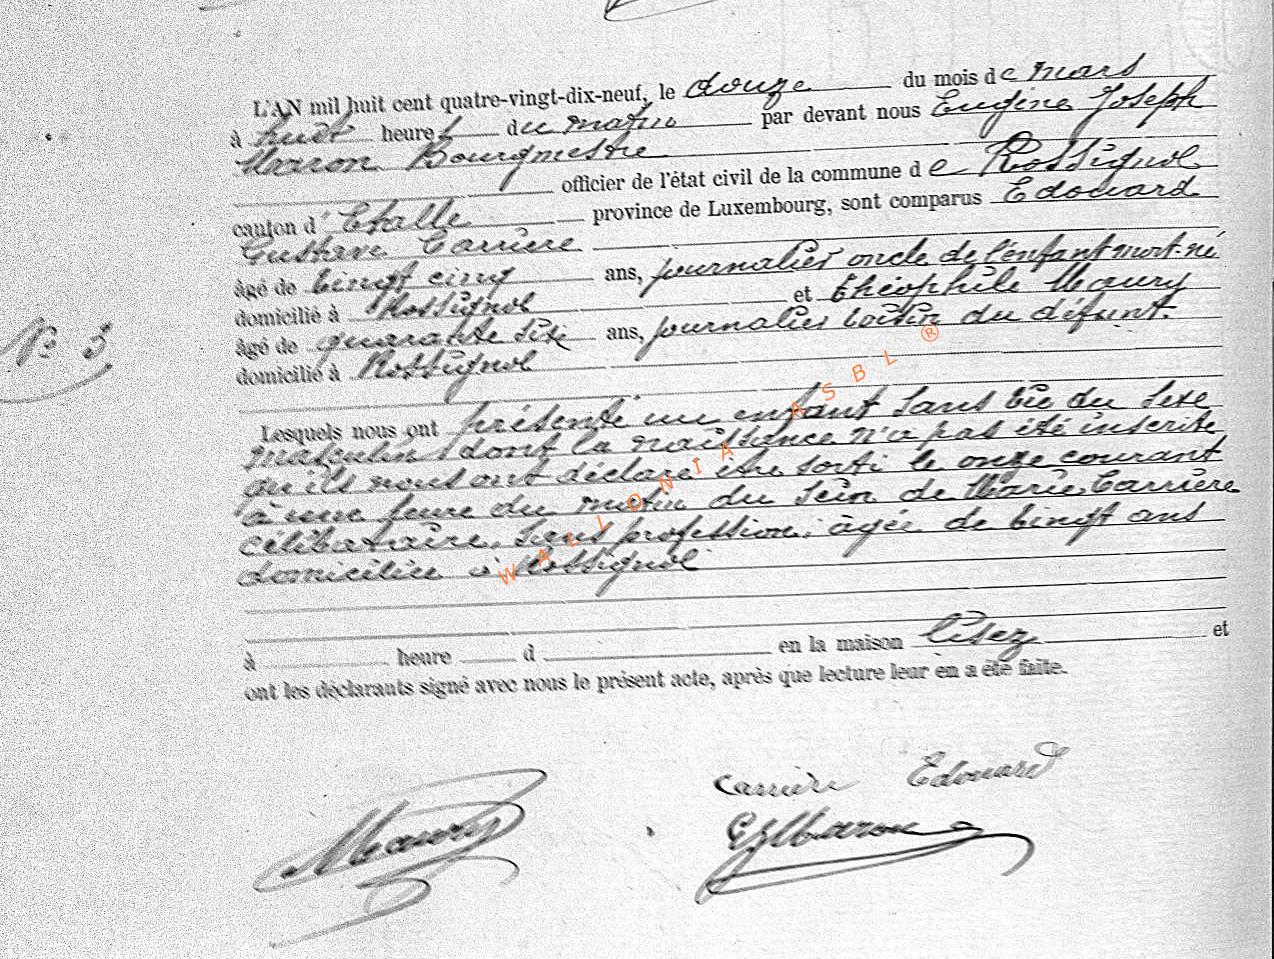 L'AN mil huit cent quatre-vingt-dix-neuf, le douze du mois de mars
à huit heures du matin par devant nous Eugène Joseph
Maron Bourgmestre
officier de l'état civil de la commune de Rossignol
canton d'Etalle province de Luxembourg, sont comparus Edouard
Gustave Carrière
âgé de vingt cinq ans, journalier oncle de l'enfant mort-né
domicilié à Rossignol et Théophile Maury
âgé de quarante six ans, journalier voisin du défunt.
domicilié à Rossignol
N° 3
Lesquels nous ont présenté un enfant sans vie du sexe
masculin dont la naissance n'a pas été inscrite
qu'ils nous ont déclaré être sorti le onze courant
à une heure du matin du sein de Marie Carrière
célibataire, sans profession, âgée de vingt ans
domiciliée à Rossignol
à heure d en la maison Lisez et
ont les déclarants signé avec nous le présent acte, après que lecture leur en a été faite.
Carrière Edouard
Maury
EJMaron
WALLONIA ASBL ®